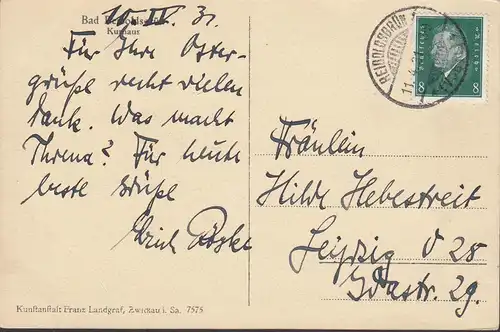 Bad Reiboldsgrün
Kurhaus
10. IV. 31.
Für Ihre Oster-
grüße recht vielen
Dank. Was macht
Threna? Für heute
beste Grüße
Erich
REIBOLDSGRÜN
11.4.
Deutsches Reich
8 8
Fräulein
Hilde Hebestreit
Leipzig O 28
Idastr. 29.
Kunstanstalt Franz Landgraf, Zwickau i. Sa. 7575